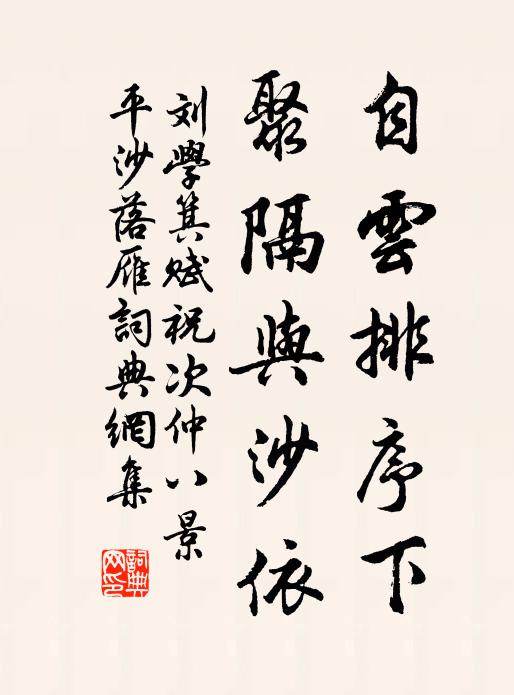 自雲排序下
聚隔與沙依
刘學箕赋祝次仲八景
平沙落雁詞典網集
詞典
网印